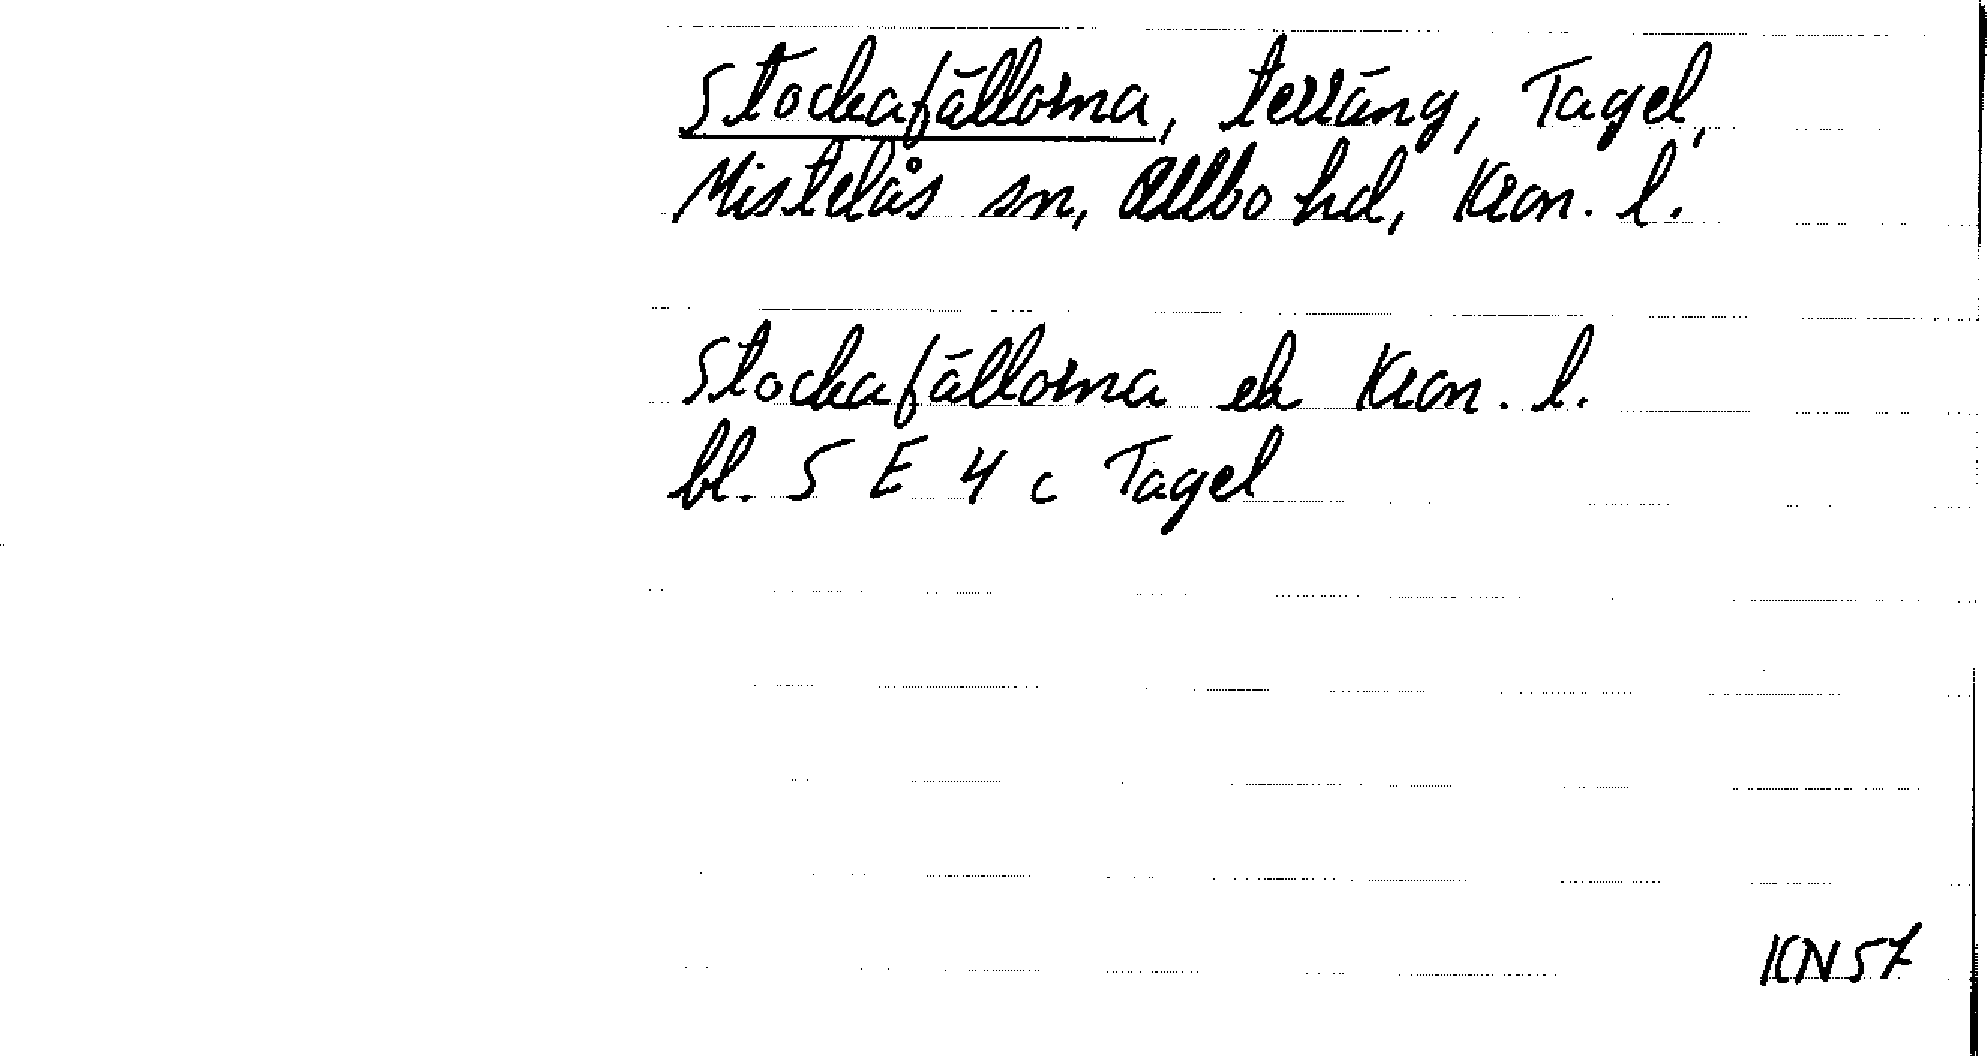 Stockafällorna, terräng, Tagel,
Mistelås sn, Allbo hd, Kron. l.
Stockafällorna ek Kron. l.
bl. 5 E 4 c Tagel
KN57